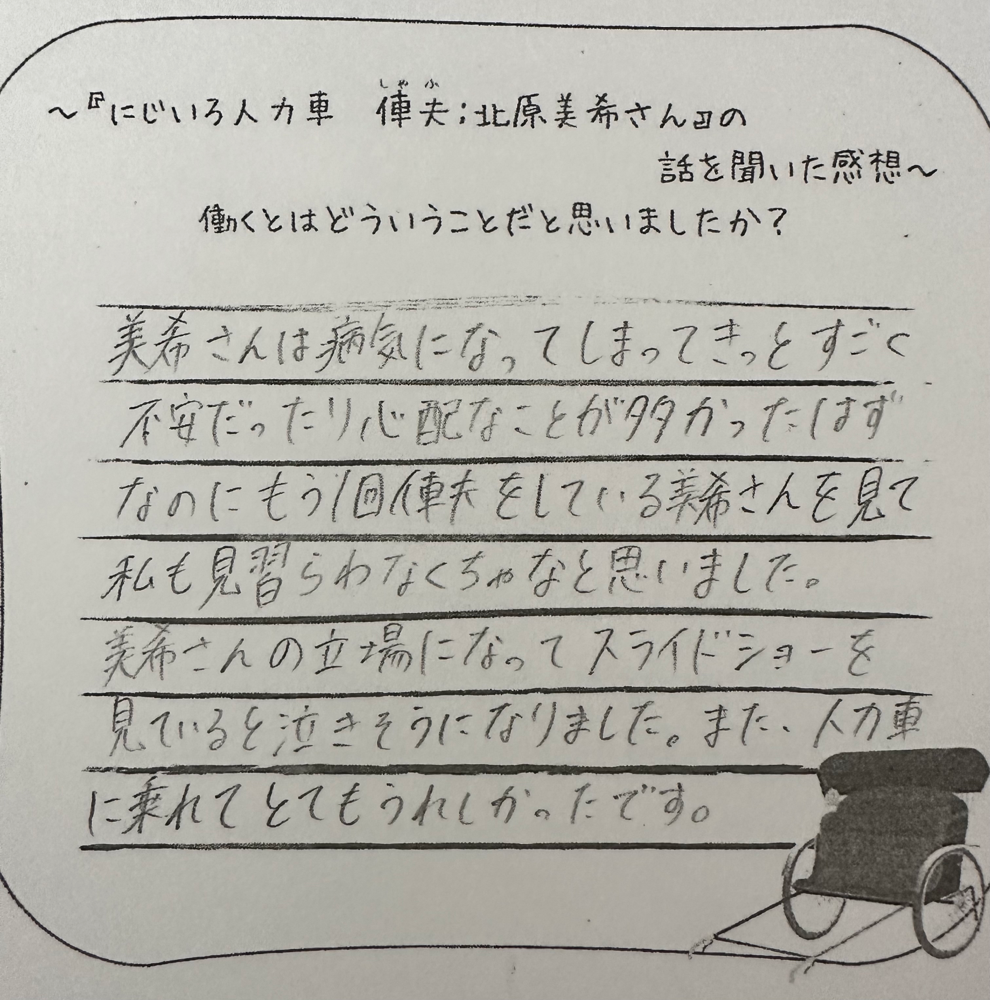 ～『にじいろ人力車 俥夫;北原美希さん』の
しゃふ
話を聞いた感想～
働くとはどういうことだと思いましたか?
美希さんは病気になってしまってきっとすごく
不安だったり心配なことが多かったはず
なのにもう1回俥夫をしている美希さんを見て
私も見習らわなくちゃなと思いました。
美希さんの立場になってスライドショーを
見ていると泣きそうになりました。また、人力車
に乗れてとてもうれしかったです。